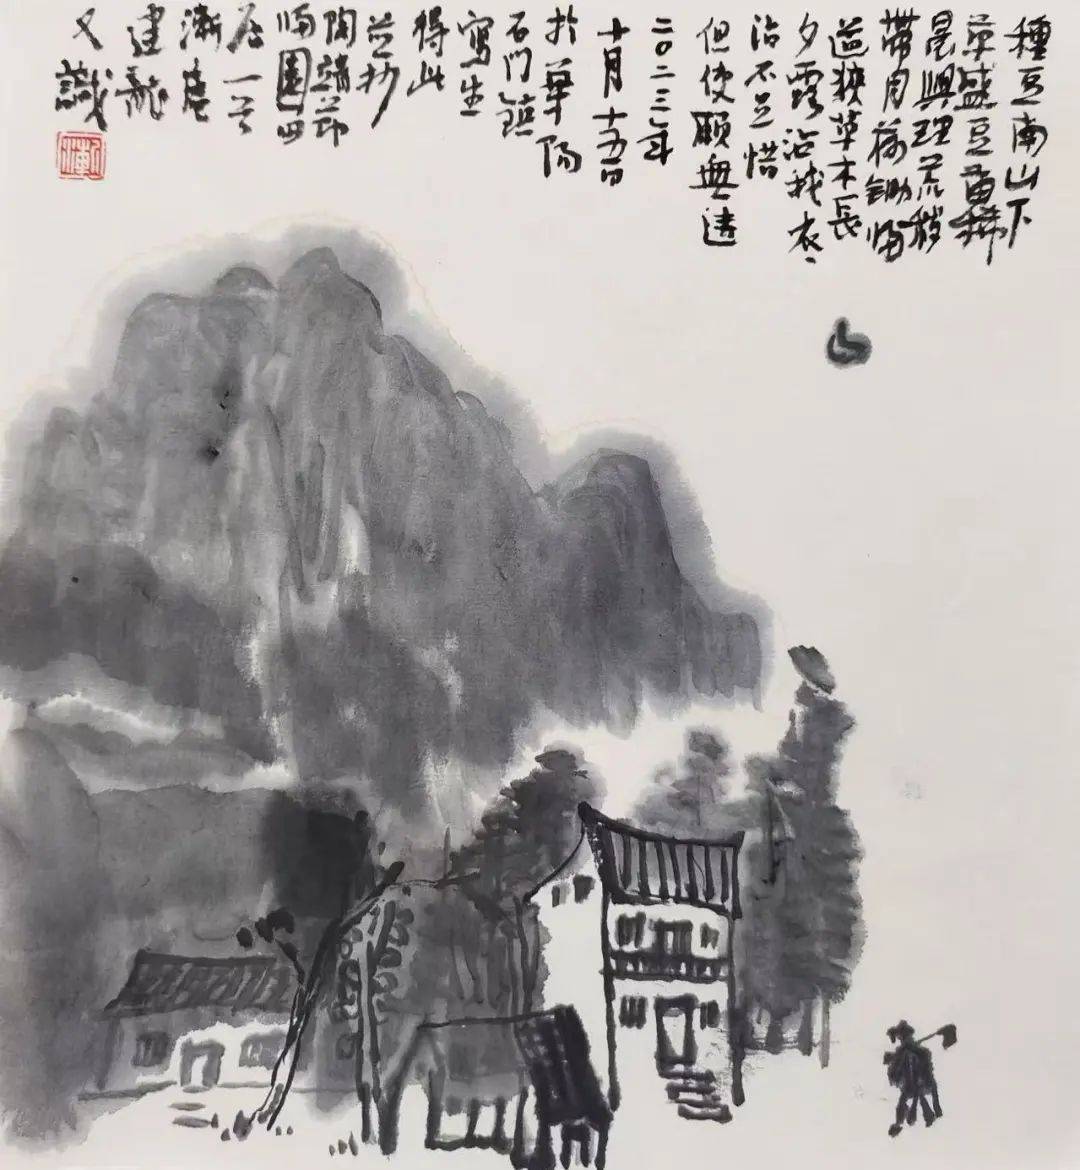 種豆南山下
草盛豆苗稀
晨興理荒穢
帶月荷鋤歸
道狹草木長
夕露沾我衣〻
沾不足惜
但使願無違
二〇二三年
十月十五日
於華陽
石门鎮
寫生
得此
並抄
陶靖节
歸園田
居一首
漸庵
建龍
又識